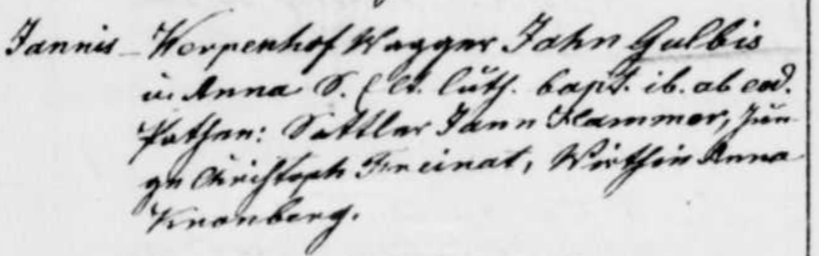 Jannis – Korpenhof Wagger Jahn Gulbis
u. Anna S. Elt. luth. bapt. ib. ab eod.
Pathen: Sattler Jann Hammer, Jün-
ge Christoph Freinat, Wirthin Anna
Kronberg.